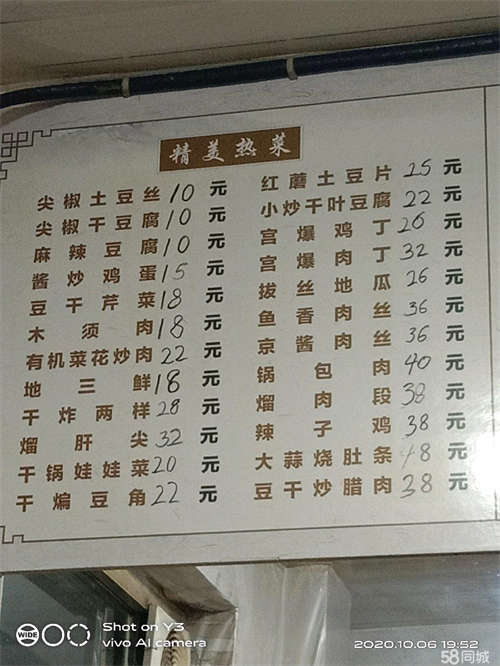 精美热菜
尖椒土豆丝 10 元
尖椒干豆腐 10 元
麻辣豆腐 10 元
酱炒鸡蛋 15 元
豆干芹菜 18 元
木须肉 18 元
有机菜花炒肉 22 元
地三鲜 18 元
干炸两样 28 元
熘肝尖 32 元
干锅娃娃菜 20 元
干煸豆角 22 元
红蘑土豆片 25 元
小炒干叶豆腐 22 元
宫爆鸡丁 26 元
宫爆肉丁 32 元
拔丝地瓜 26 元
鱼香肉丝 36 元
京酱肉丝 36 元
锅包肉 40 元
熘肉段 38 元
辣子鸡 38 元
大蒜烧肚条 48 元
豆干炒腊肉 38 元
WIDE
Shot on Y3
vivo AI camera
2020.10.06 19:52
58同城